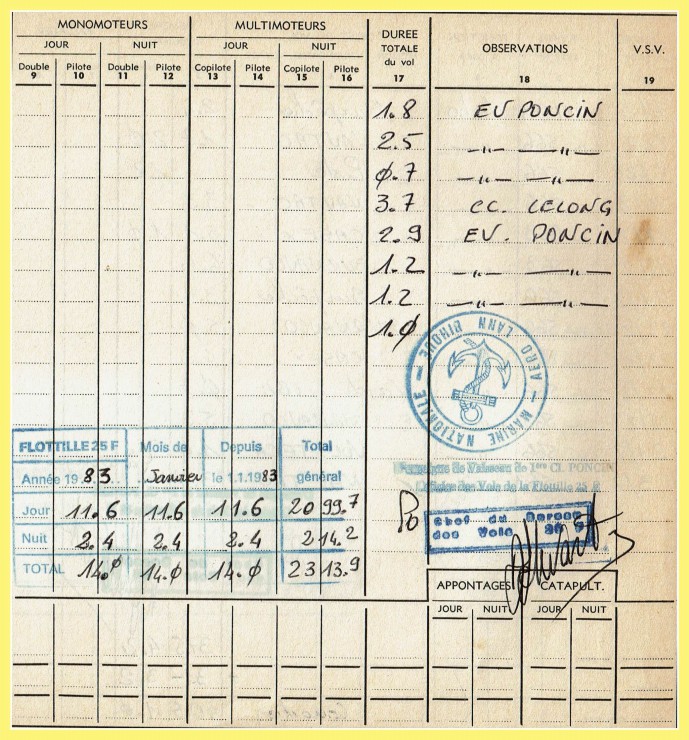 MONOMOTEURS MULTIMOTEURS DUREE TOTALE du vol OBSERVATIONS V.S.V.
JOUR NUIT JOUR NUIT
Double 9 Pilote 10 Double 11 Pilote 12 Copilote 13 Pilote 14 Copilote 15 Pilote 16 17 18 19
1.8 EV PONCIN
2.5 -〃- -〃-
0.7 -〃- -〃-
3.7 CC. LELONG
2.9 EV. PONCIN
1.2 -〃- -〃-
1.2 -〃- -〃-
1.0
MARINE NATIONALE - AERO LANN BIHOUE -
FLOTTILLE 25 F Mois de Depuis Total
Année 19 83 Janvier le 1.1.1983 général
Jour 11.6 11.6 11.6 2099.7
Nuit 2.4 2.4 2.4 214.2
TOTAL 14.0 14.0 14.0 2313.9
de Vaisseau de 1ère Cl. PONCIN
Officier des Vols de la Flottille 25 F
Po
Chef du Bureau
des Vols 25 F
APPONTAGES CATAPULT.
JOUR NUIT JOUR NUIT